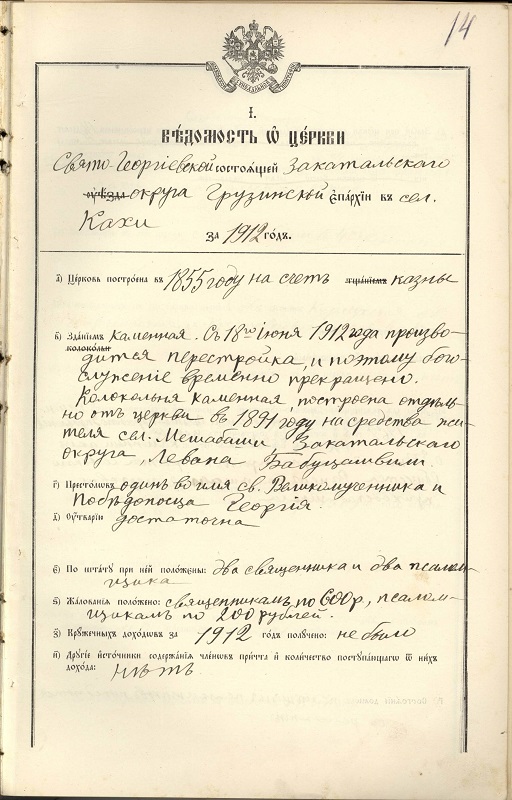 14
I.
ВѢДОМОСТЬ Ѿ ЦЕРКВИ
Свято-Георгіевской состоѧщей Закатальскаго
оуѣзда округа Грузинской Єпархіи въ сел.
Кахи
за 1912 годъ.
а) Церковь построена въ 1855 году на счетъ тщаніемъ казны
в) Зданіемъ каменная. Съ 18го іюня 1912 года произво-
колокольн
дится перестройка, и поэтому бого-
служеніе временно прекращено.
Колокольня каменная, построена отдѣль-
но отъ церкви въ 1891 году на средства жи-
теля сел. Мешабаши Закатальскаго
округа, Левана Бабуцашвили.
г) Престоловъ одинъ во имя св. Великомученника и
Побѣдоносца Георгія.
д) Оутварію достаточна
є) По штату при ней положены: два священника и два псалом-
щика
ѕ) Жалованія положено: священникамъ по 600 р, псалом-
щикамъ по 200 рублей.
з) Кружечныхъ доходѡвъ за 1912 годъ получено: не было
и) Другіе источники содержанія членѡвъ причта и количество поступающагѡ ѿ нихъ
дохода: нѣтъ